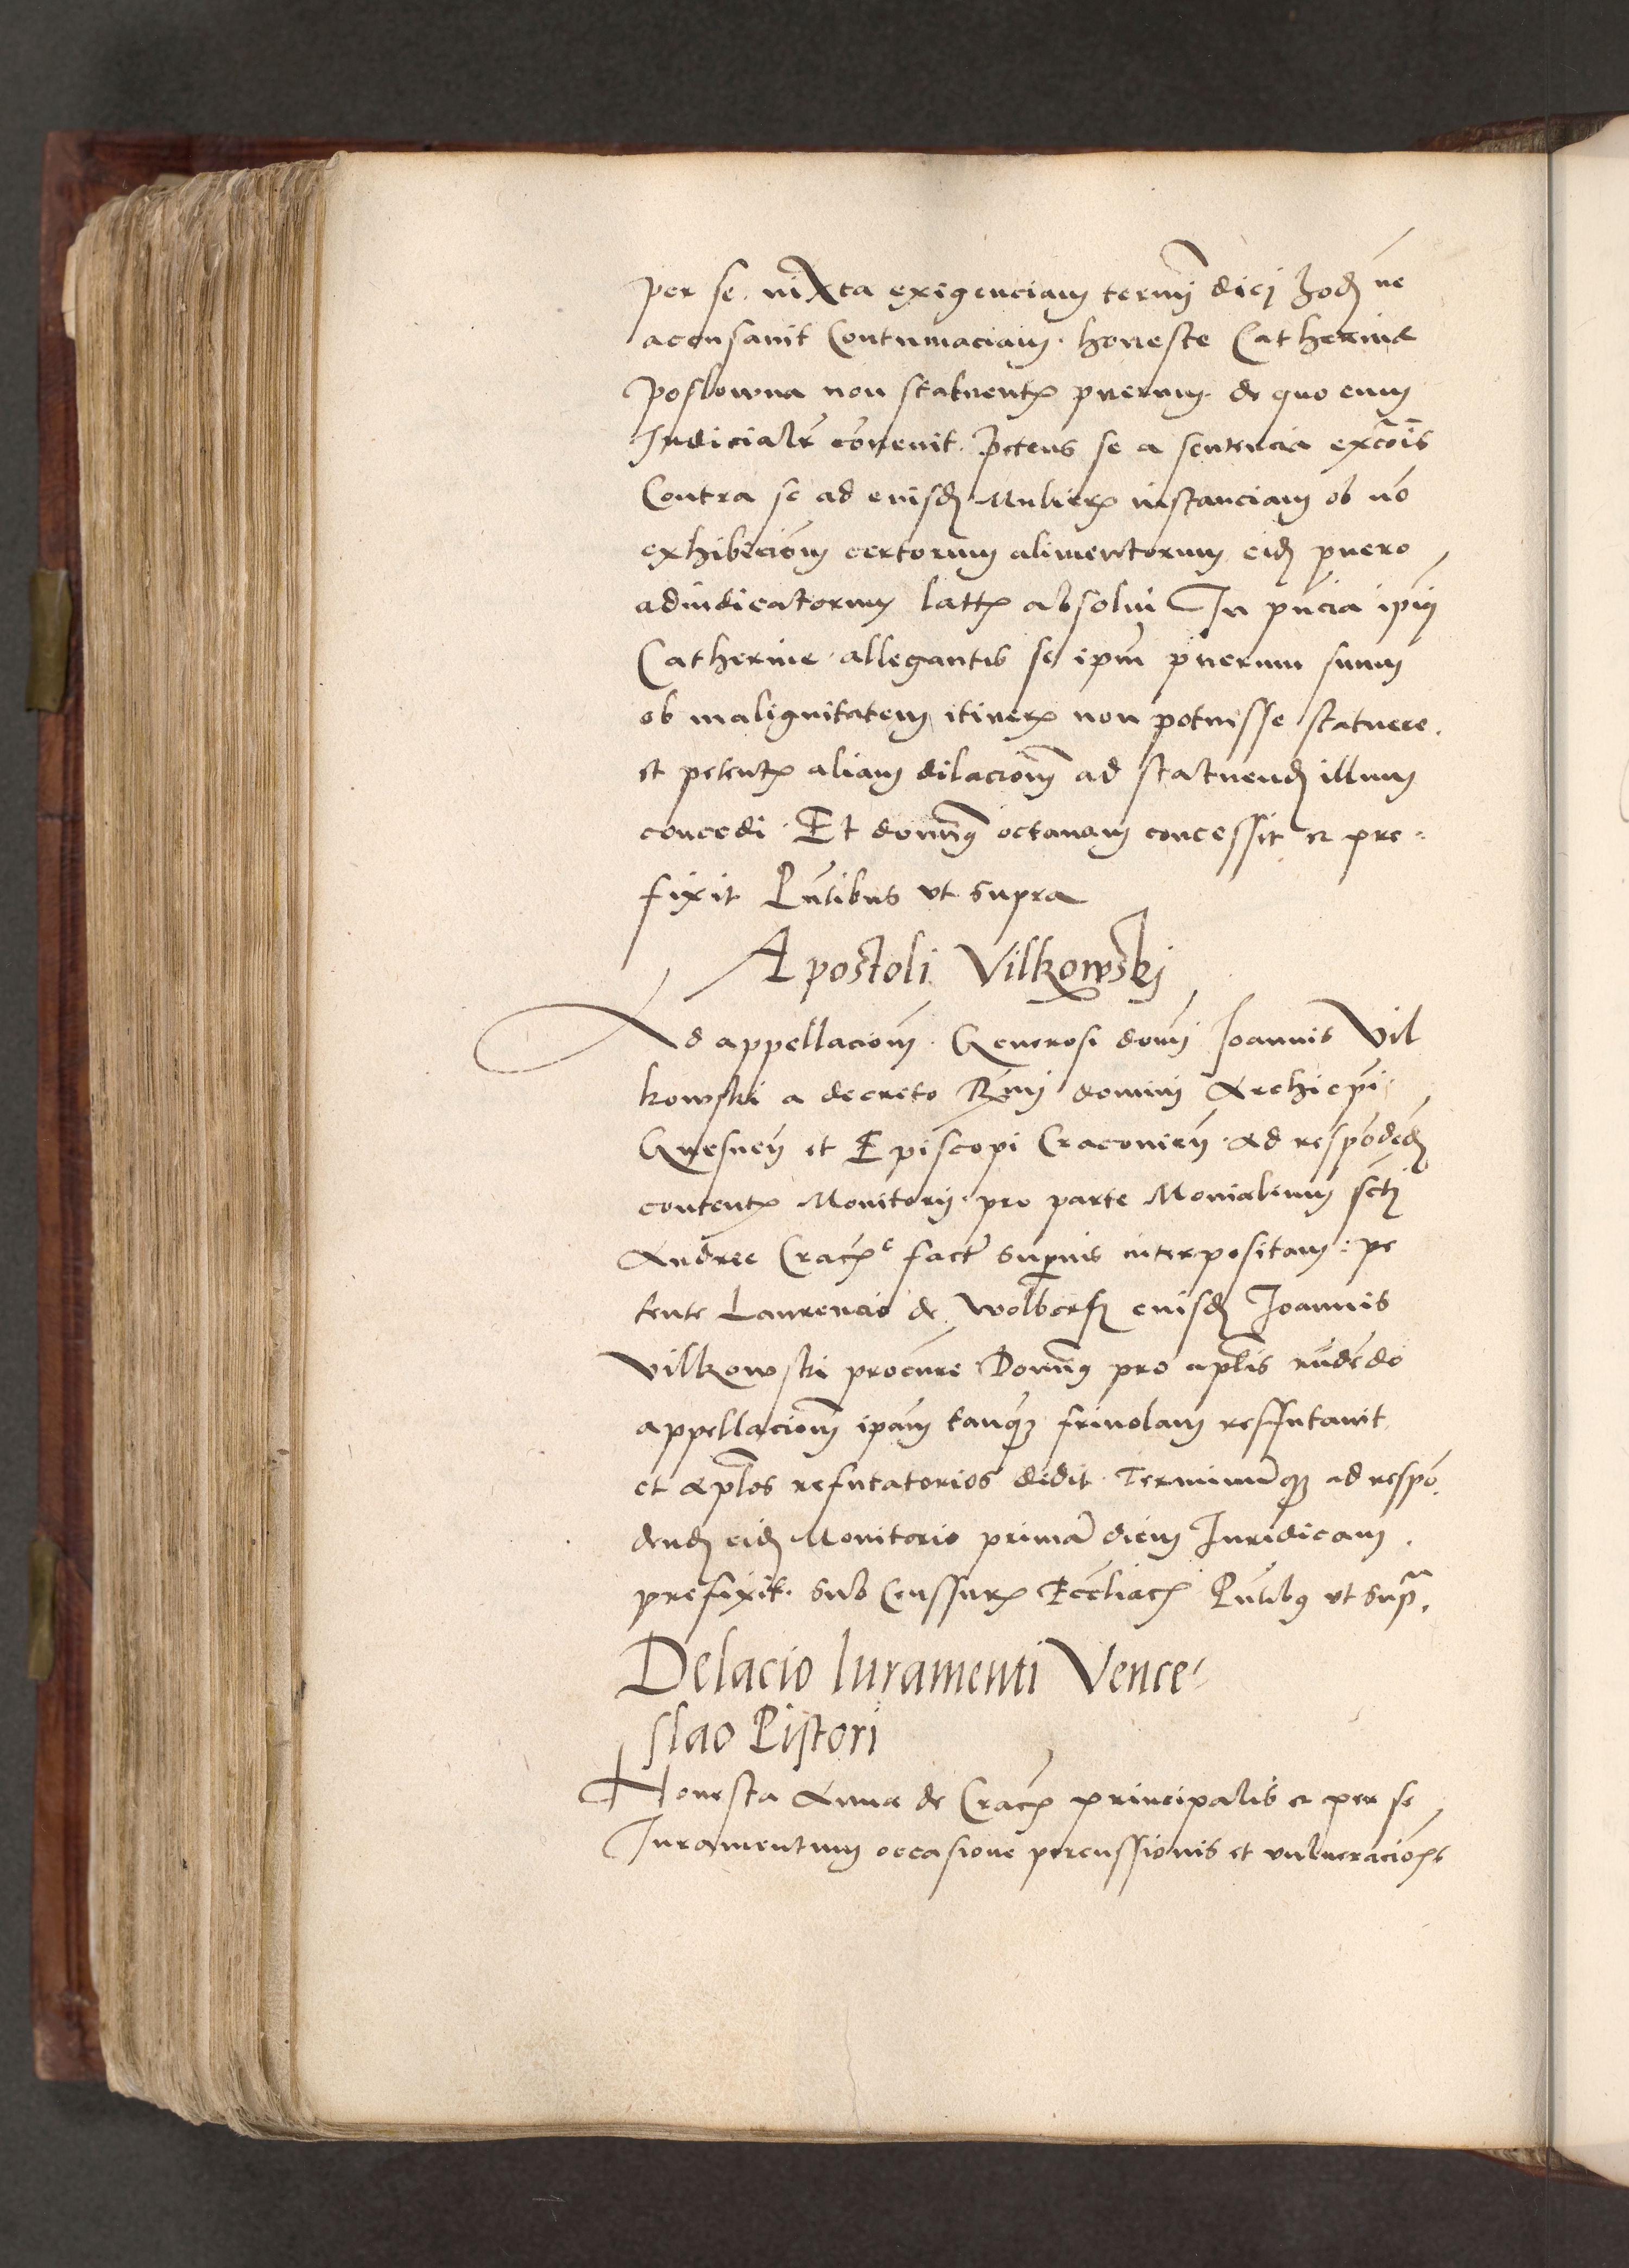 per se. iuxta exigenciam termi diej hodne
acousauit Contumaciam. honeste Catherine
Poslowna non statuent[is] puerum. de quo eum
Judicialr conenit. Petens se a sentencia exc̃ois
Contra se ad euisd Mulier[is] instanciam ob no
exhibiciom certorum alimentorum eid puero
adiudicatorum latt[e] absolui In pncia ipiꝰ
Catherine allegantis se ipm puerum suum
ob malignitatem itiner[is] non potuisse statuere.
et petent[is] aliam dilaciom ad statuend illum
concedi. Et domnꝰ octauam concessit et pre=
fixit Pntibus vt supra
Apostoli Vilkowskj
Ad appellaciom. Generosi domi Joannis Vil
kowski a decreto Rmi dominj Archiepi
Gnesnen et Episcopi Cracouien Ad respoded
content[is] Monitorij pro parte Monialium sctj
Andree Crac[ouie] fact superius interpositam: pe
tente Laurencio de Wolborz euisd Joannis
Vilkowski procure Domnꝰ pro aplis rndedo
appellaciom ipam tanq friuolam reffutauit
et aplos refutatorios dedit. Terminuqꝫ ad respo
dend eid Monitorio prima diem Juridicam.
prefixit. sub Censsur[is] Eccliac[is] Pntibꝰ vt supra.
Delacio Iuramenti Vence-
slao Pistori
Honesta Anna de Crac[ouia] principalis et per se
Juramentum occasione percussionis et vulneracio[nis]